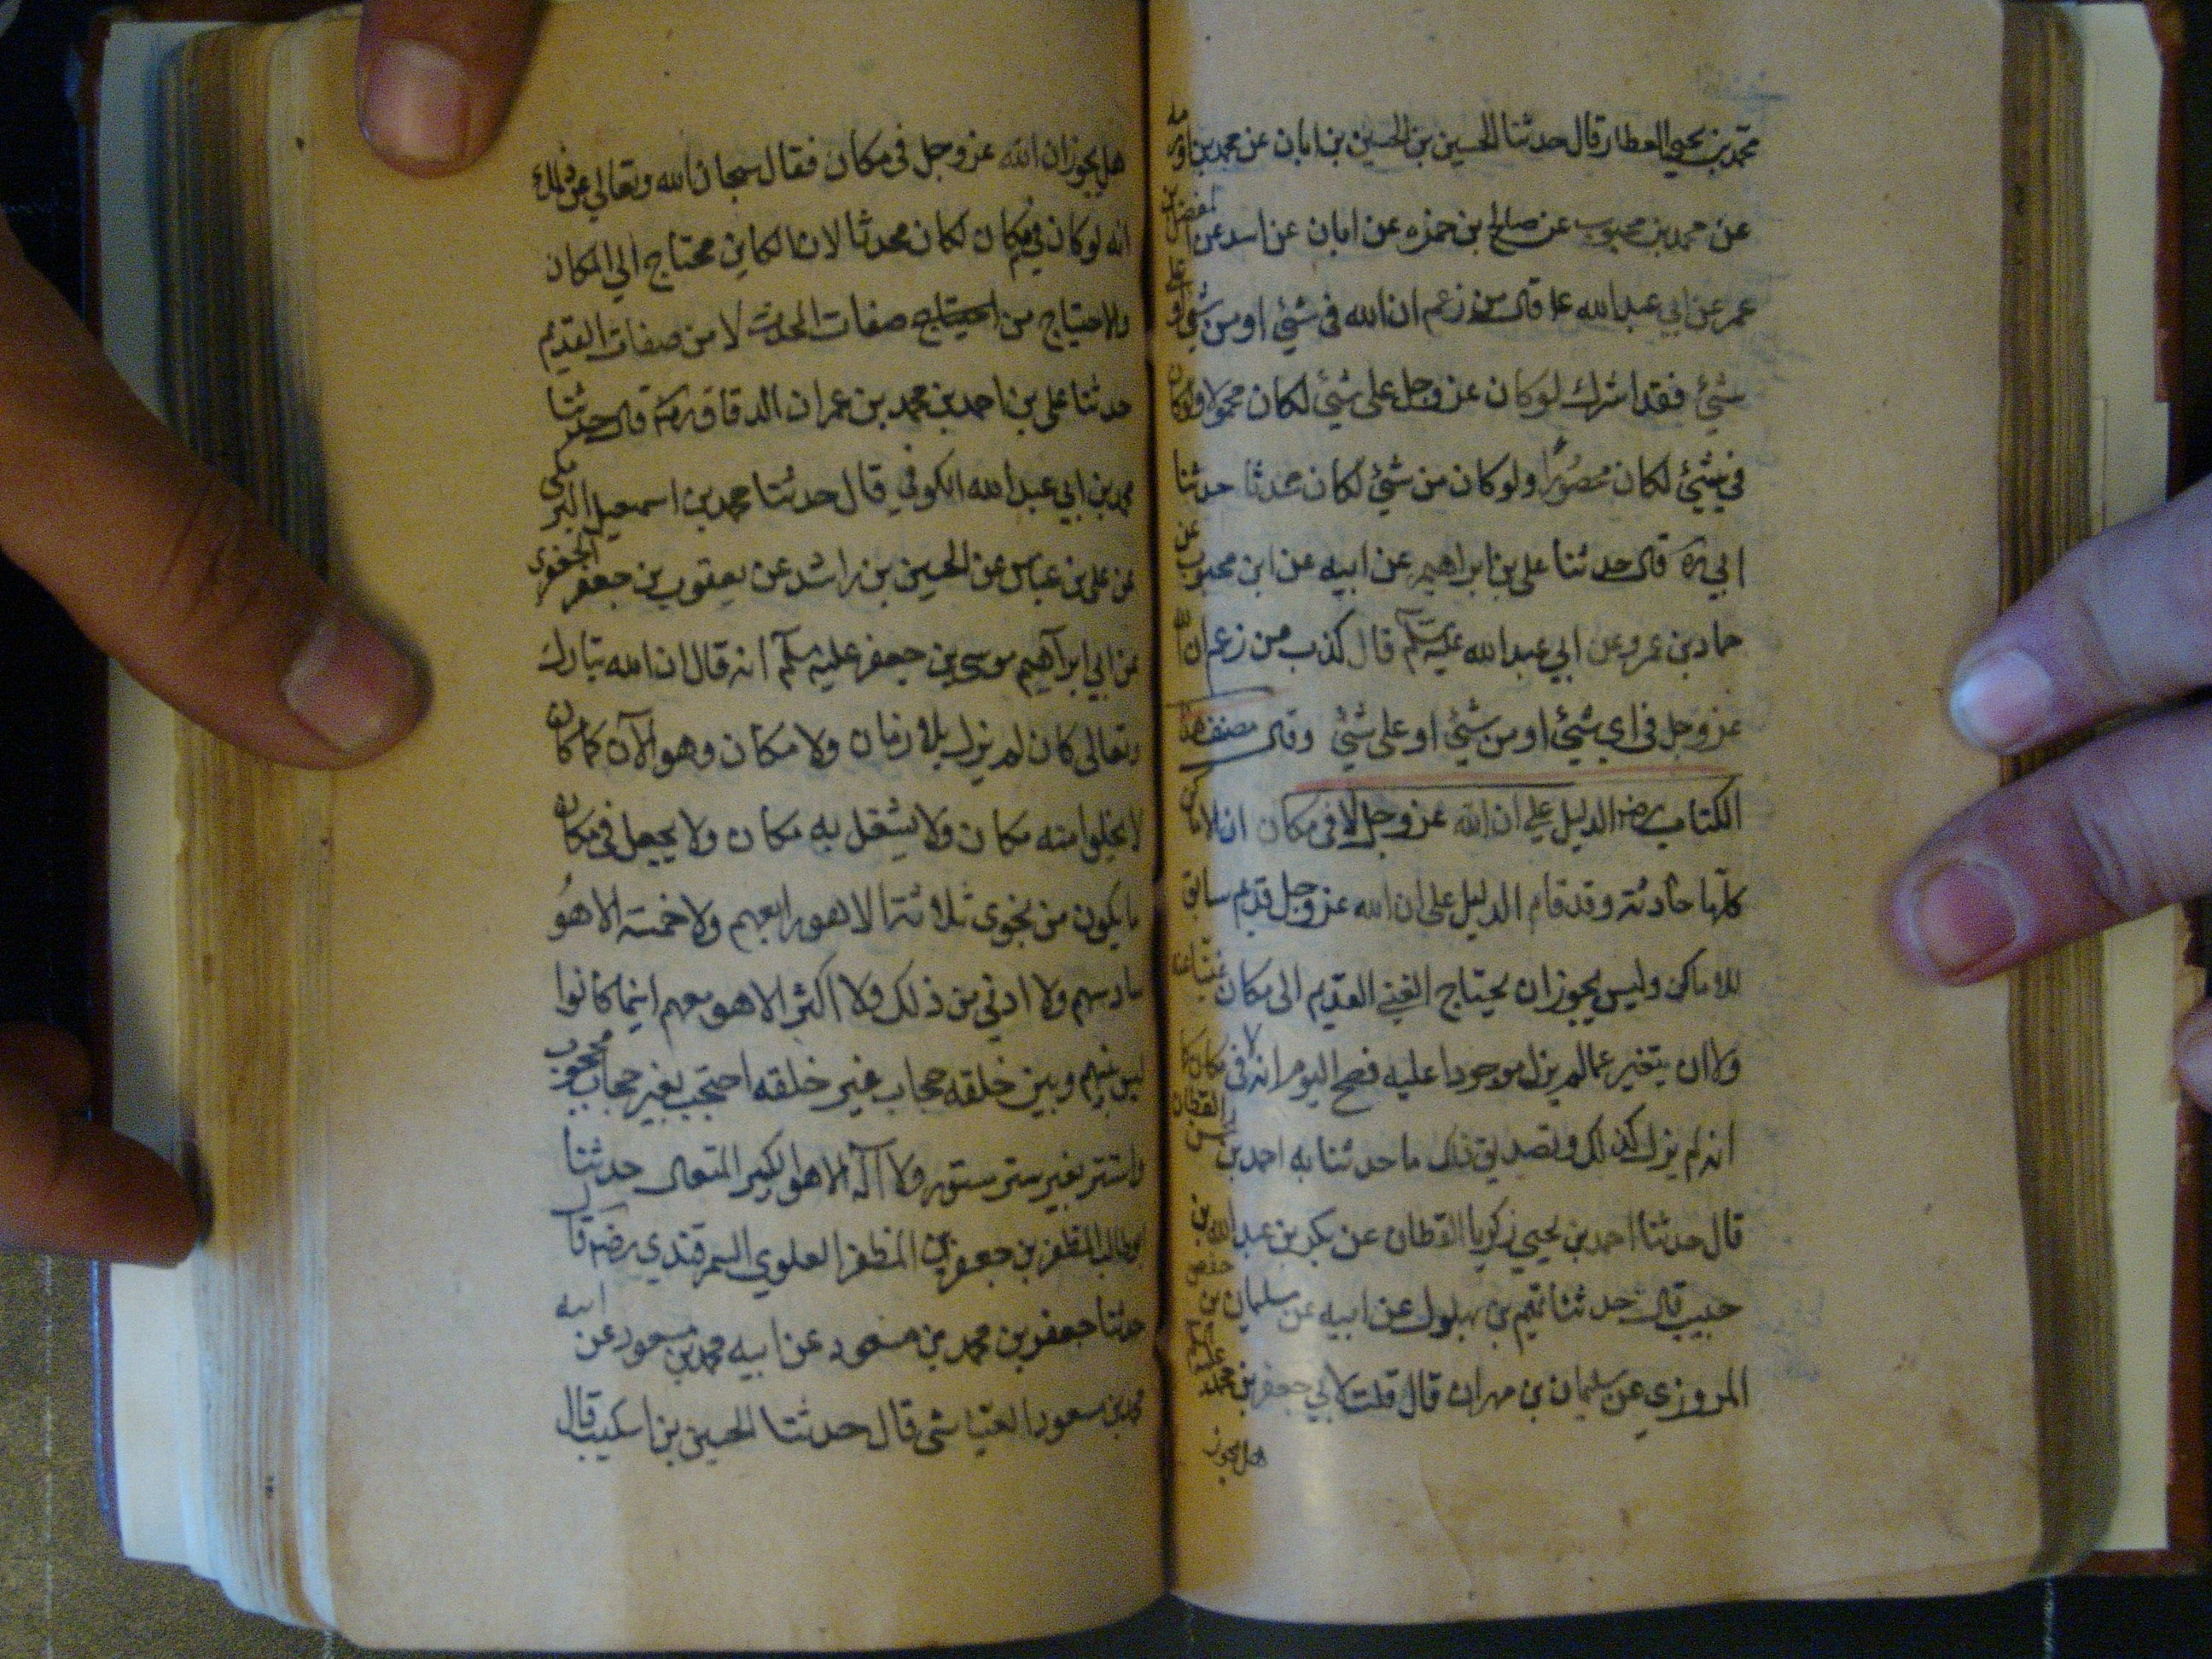 محمد بن يحيي العطار قال حدثنا الحسين بن الحسين بن ابان عن محمد بن اورمه
عن محمد بن محبوب عن صالح بن حمزه عن ابان عن اسد عن المفضل بن
عمر عن ابي عبد الله ع قال من زعم ان الله في شئي او من شئي او علي
شئي فقد اشرك لو كان عز وجل علي شئي لكان محمولا ولو كان
في شئي لكان محصورا ولو كان من شئي لكان محدثا حدثنا
ابي ره قال حدثنا علي بن ابراهيم عن ابيه عن ابن محبوب عن
حماد بن عمرو عن ابي عبد الله عليه السلم قال كذب من زعم ان الله
عز وجل في اي شئي او من شئي او علي شئي وقال مصنف هذا
الكتاب رضه الدليل علي ان الله عز وجل لا في مكان ان الاماكن
كلها حادثة وقد قام الدليل علي ان الله عز وجل قديم سابق
للاماكن وليس يجوز ان يحتاج الغني القديم الى مكان غنيا عنه
ولا ان يتغير عما لم يزل موجودا عليه فصح اليوم انه لا في مكان كما
انه لم يزل كذلك وتصديق ذلك ما حدثنا به احمد بن الحسن القطان
قال حدثنا احمد بن يحيي زكريا القطان عن بكر بن عبد الله بن
حبيب قال حدثنا تميم بن بهلول عن ابيه عن سليمان بن حفص
المروزي عن سليمان بن مهران قال قلت لابي جعفر بن محمد
هل يجوز
هل يجوز ان الله عز وجل في مكان فقال سبحان الله وتعالي عن ذلك
انه لو كان في مكان لكان محدثا لان الكاين محتاج الي المكان
والاحتياج من صفات المحدث لا من صفات القديم
حدثنا علي بن احمد بن محمد بن عمران الدقاق ره قال حدثنا
محمد بن ابي عبد الله الكوفي قال حدثنا محمد بن اسمعيل البرمكي
عن علي بن عباس عن الحسين بن راشد عن يعقوب بن جعفر الجعفري
عن ابي ابراهيم موسى بن جعفر عليه السلم انه قال ان الله تبارك
وتعالى كان لم يزل بلا زمان ولا مكان وهو الآن كما كان
لا يخلوا منه مكان ولا يشغل به مكان ولا يحل في مكان
ما يكون من نجوى ثلاثة الا هو رابعهم ولا خمسة الا هو
سادسهم ولا ادني من ذلك ولا اكثر الا هو معهم اينما كانوا
ليس بينهم وبين خلقه حجاب غير خلقه احتجب بغير حجاب محجوب
واستتر بغير ستر مستور ولا آله الا هو الكبير المتعال حدثنا
ابو طالب المظفر بن جعفر بن المظفر العلوي السمرقندي رضه قال
حدثنا جعفر بن محمد بن مسعود عن ابيه محمد بن مسعود عن ابيه
محمد بن مسعود العياشي قال حدثنا الحسين بن اسكيب قال